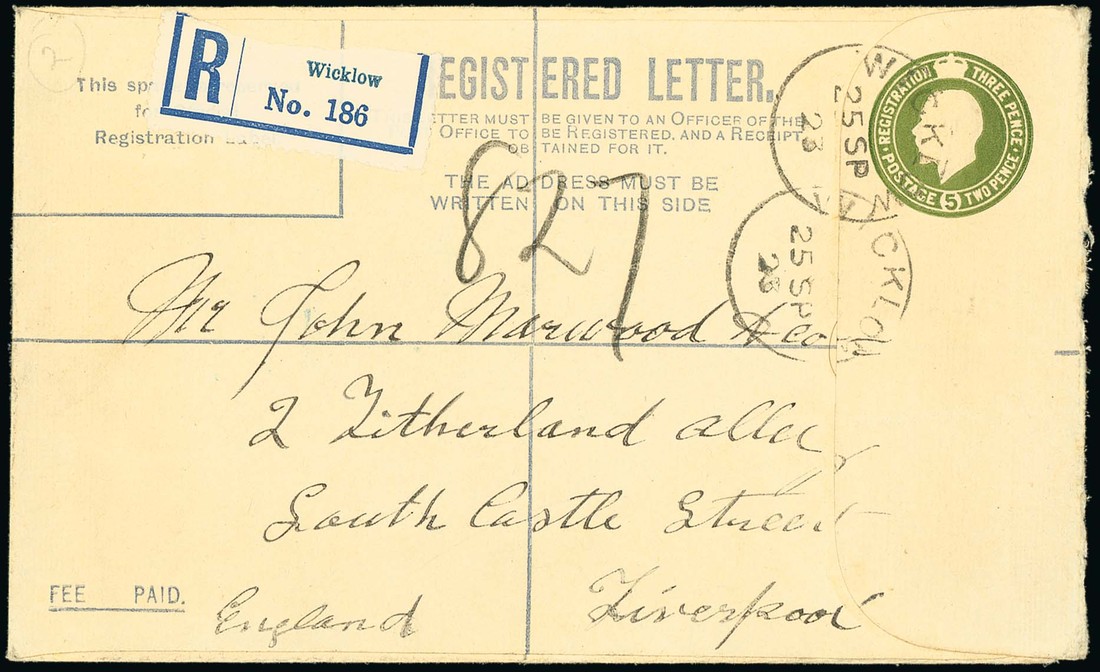 2
This sp
fo
Registration
R
Wicklow
No. 186
EGISTERED LETTER.
LETTER MUST BE GIVEN TO AN OFFICER OF THE
OFFICE TO BE REGISTERED, AND A RECEIPT
OBTAINED FOR IT.
THE ADDRESS MUST BE
WRITTEN ON THIS SIDE
827
WICKLOW
25 SP
23
WICKLOW
25 SP
23
REGISTRATION THREE PENCE
POSTAGE (5) TWO PENCE
Mr John Marwood & Co
2 Litherland alley
South Castle Street
Liverpool
England
FEE PAID.